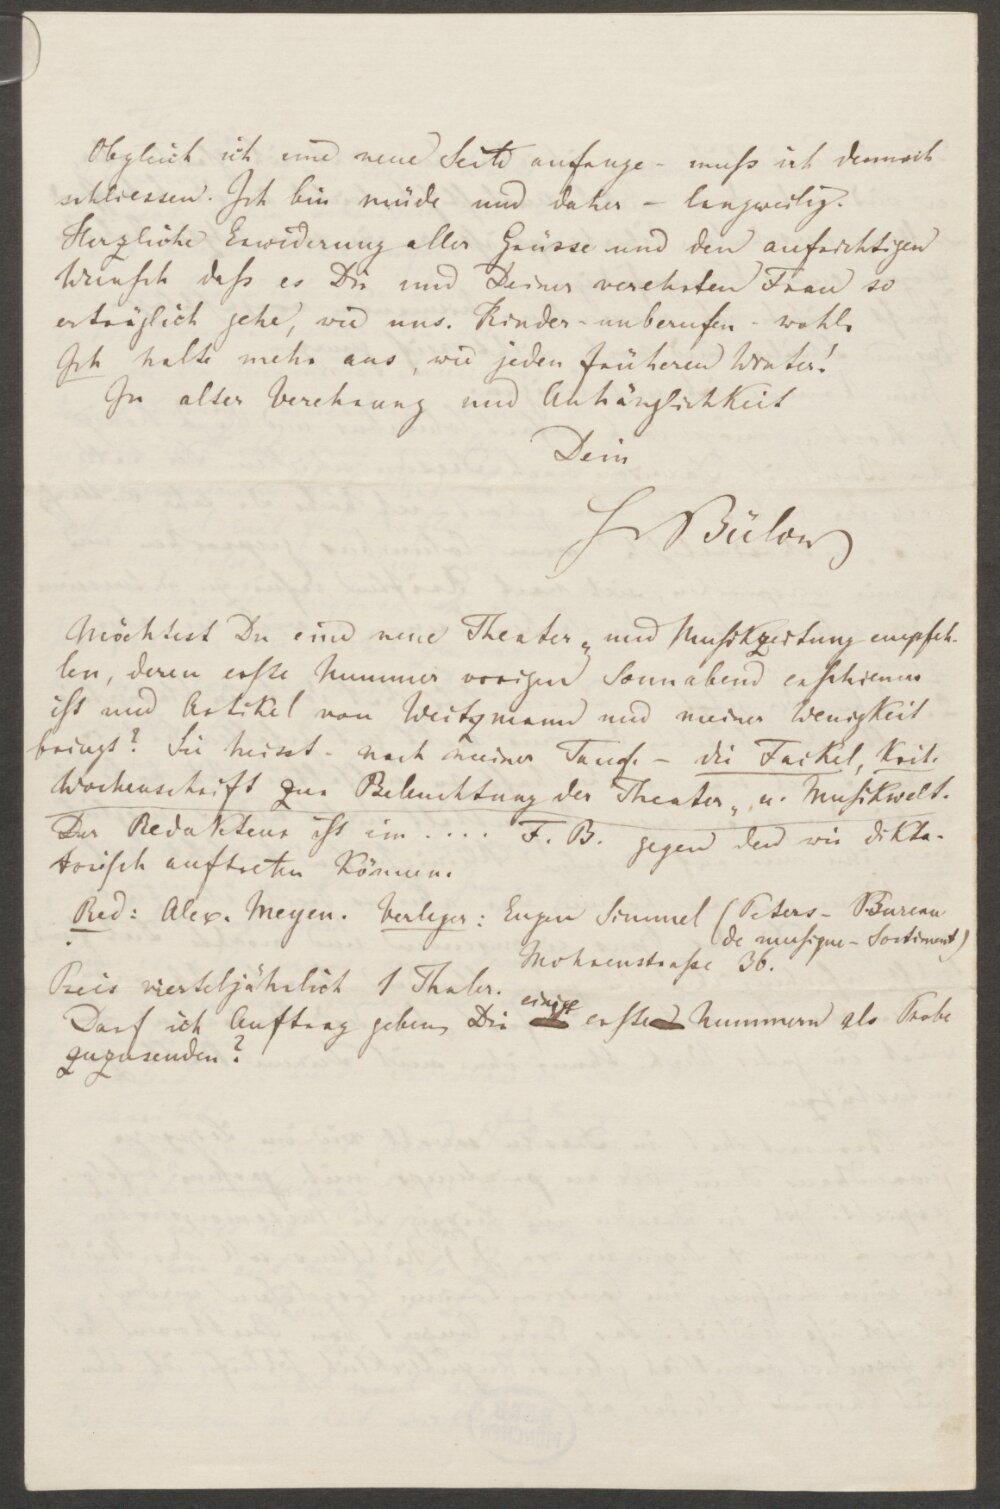 Obgleich ich eine neue Seite anfange – muß ich dennoch
schliessen. Ich bin müde und daher – langweilig.
Herzliche Erwiderung aller Grüsse und den aufrichtigen
Wunsch daß es Dir und Deiner verehrten Frau so
erträglich gehe, wie uns. Kinder – unberufen – wohl.
Ich halte mehr aus, wie jeden früheren Winter!
In alter Verehrung und Anhänglichkeit
Dein
HvBülow
Möchtest Du eine neue Theater- und Musikzeitung empfeh-
len, deren erste Nummer vorigen Sonnabend erschienen
ist und Artikel von Weitzmann und meiner Wenigkeit
bringt? Sie heisst – nach meiner Taufe – die Fackel, krit.
Wochenschrift zur Beleuchtung der Theater- u. Musikwelt.
Der Redakteur ist ein .... F. B. gegen den wir dikta-
torisch auftreten können.
Red: Alex. Meyen. Verleger: Eugen Simmel (Peters – Bureau
de musique – Sortiment)
Mohrenstraße 36.
Preis vierteljährlich 1 Thaler.
Darf ich Auftrag geben, Dir einige erste Nummern als Probe
zuzusenden?